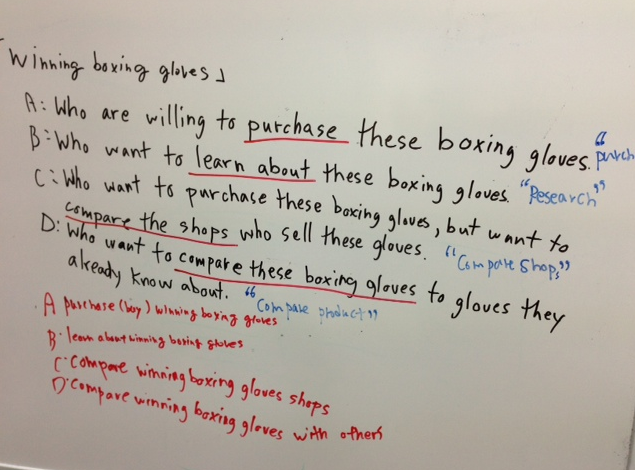 「Winning boxing gloves」
A: Who are willing to purchase these boxing gloves. "purch
B: Who want to learn about these boxing gloves. "Research"
C: Who want to purchase these boxing gloves, but want to
compare the shops who sell these gloves. "Compare Shops"
D: Who want to compare these boxing gloves to gloves they
already know about. "Compare product"
A purchase (buy) winning boxing gloves
B: learn about winning boxing gloves
C: Compare winning boxing gloves shops
D: Compare winning boxing gloves with others